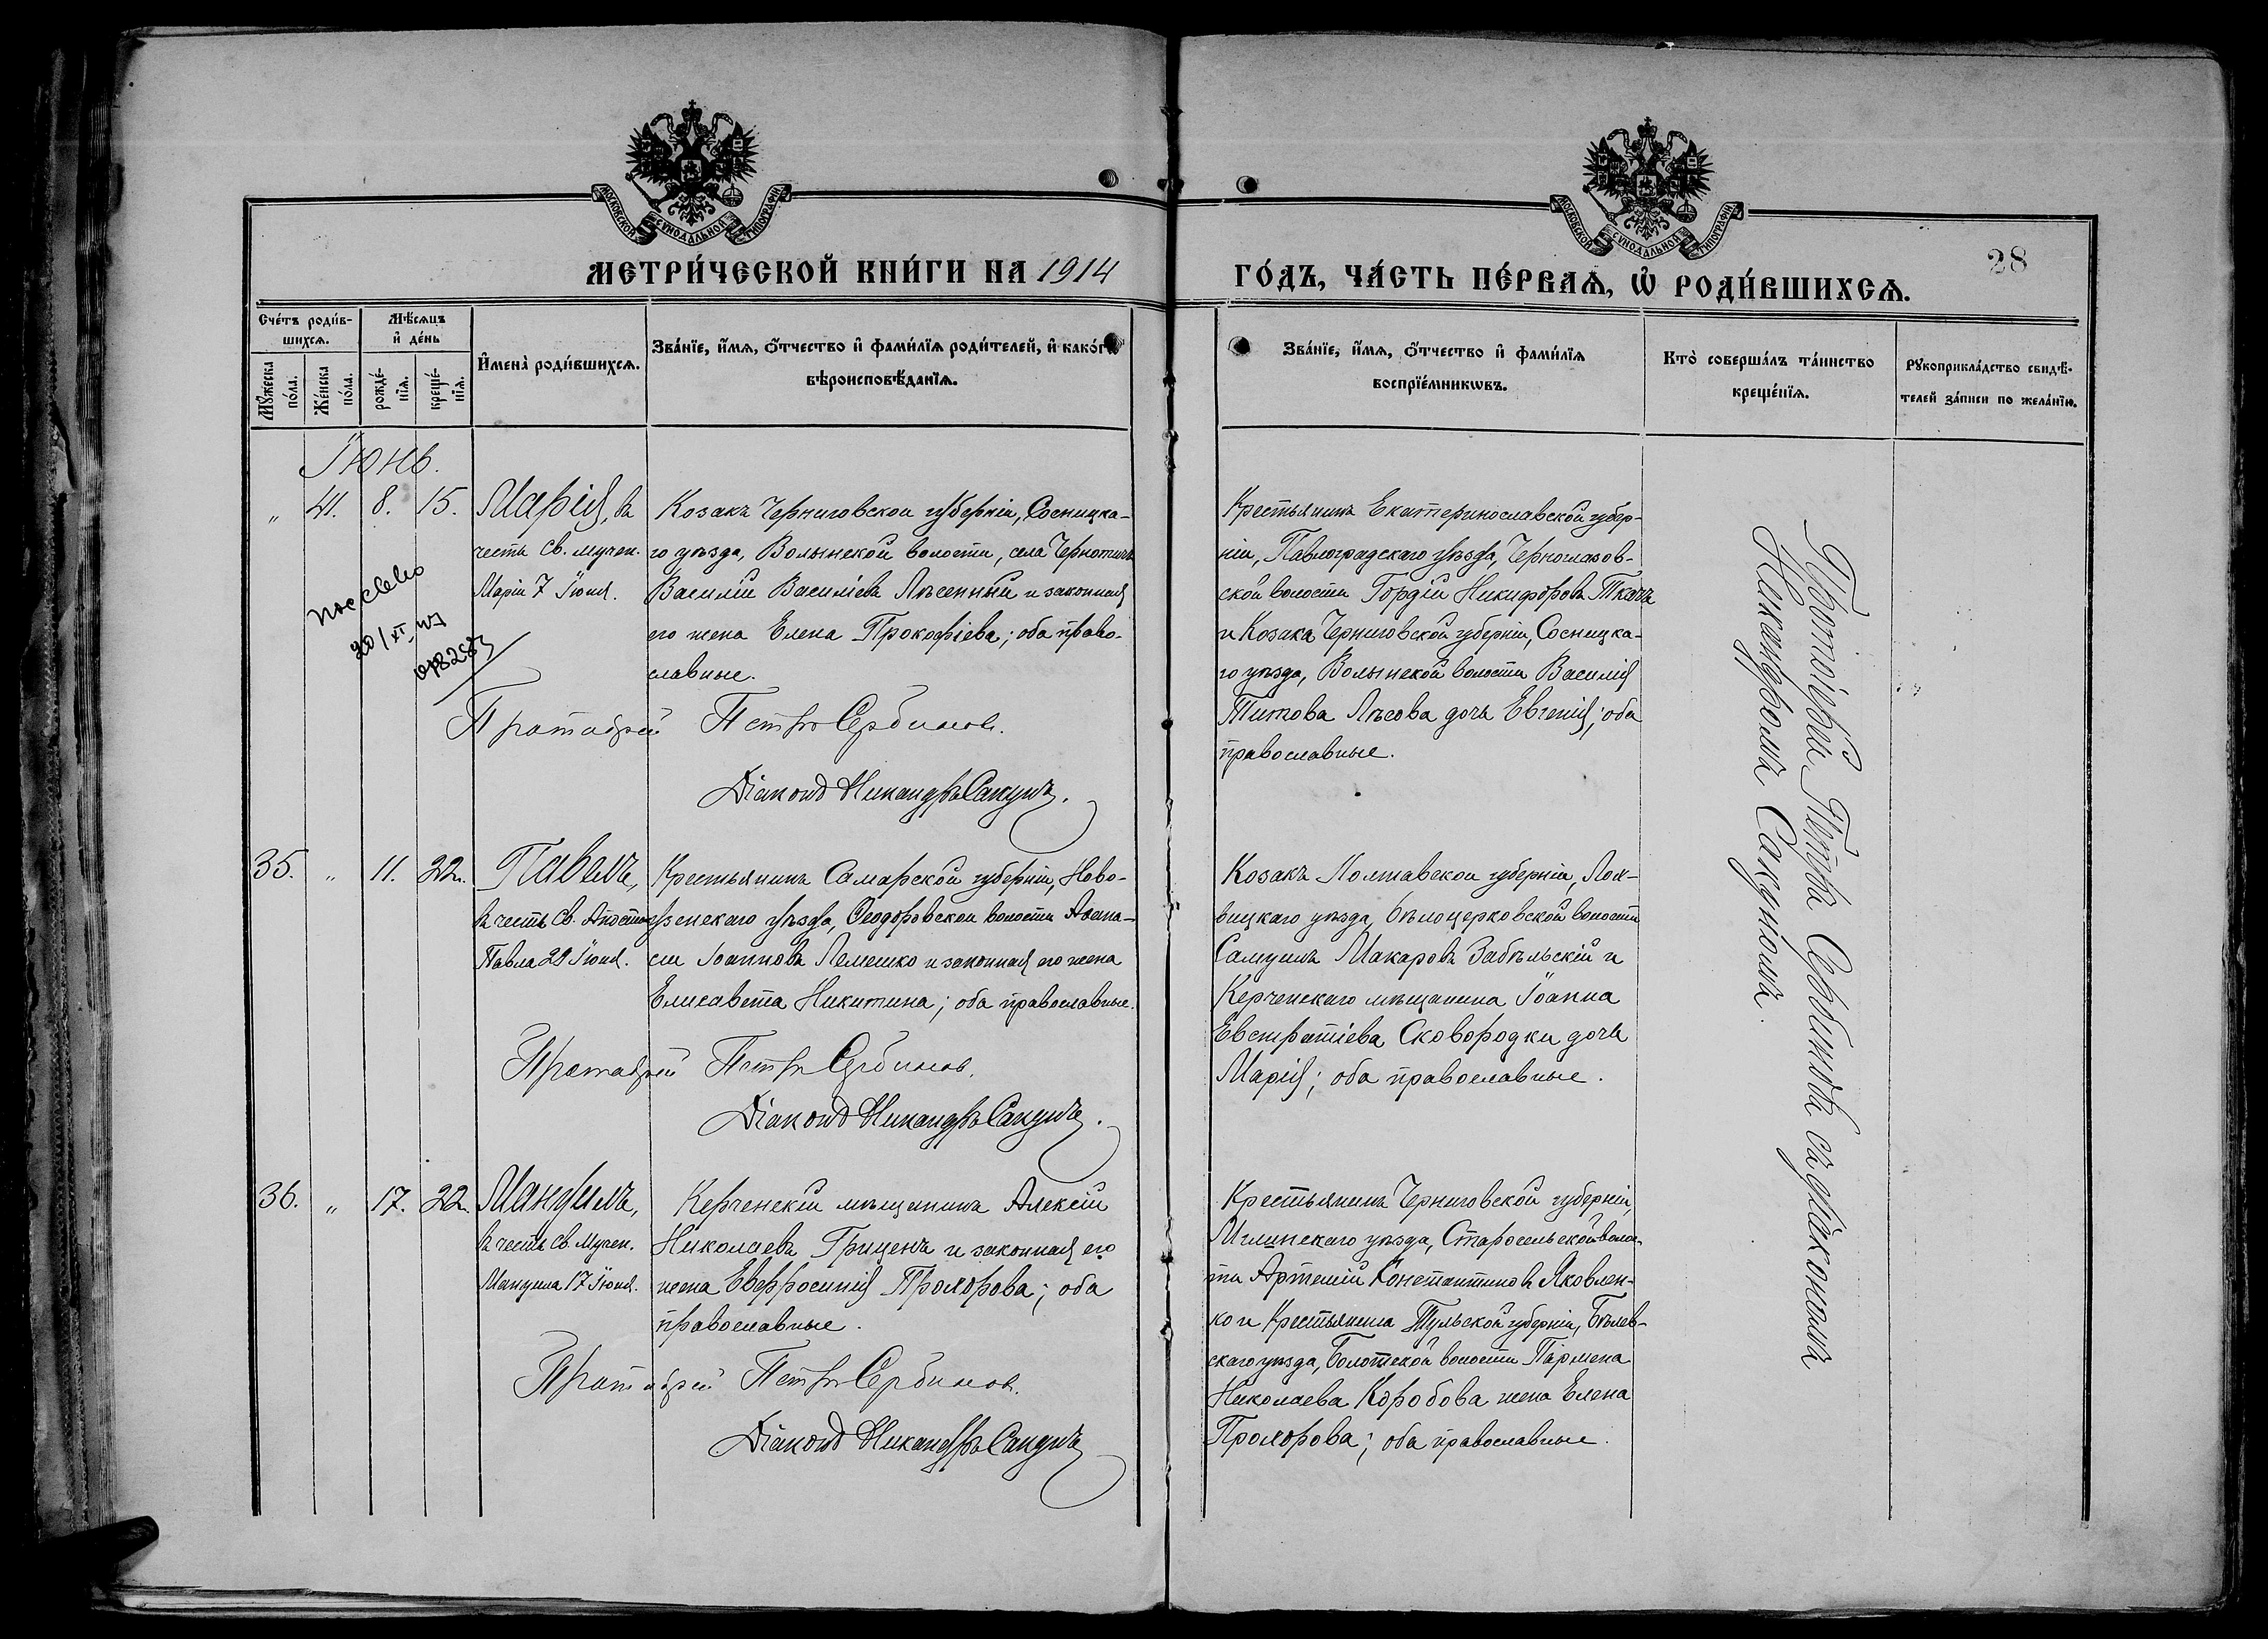 МОСКОВСКОЙ СѴНОДАЛЬНОЙ ТИПОГРАФІИ
МОСКОВСКОЙ СѴНОДАЛЬНОЙ ТИПОГРАФІИ
28
МЕТРИ́ЧЕСКОЙ КНИ́ГИ НА 1914
ГО́ДЪ, ЧА́СТЬ ПЕ́РВАѦ, Ѿ РОДИ́ВШИХСѦ.
Сче́тъ роди́в-
шихсѧ.
Мꙋжеска по́ла.
Же́нска по́ла.
Мѣ́сѧцъ
и҆ де́нь
рожде́-
нїѧ.
креще́-
нїѧ.
И҆мена̀ роди́вшихсѧ.
Зва́нїе, и҆́мѧ, ѻ҆́тчество и҆ фами́лїѧ роди́телей, и҆ како́гѡ
вѣроисповѣ́данїѧ.
Зва́нїе, и҆́мѧ, ѻ҆́тчество и҆ фами́лїѧ
воспрїе́мникѡвъ.
Кто̀ соверша́лъ та́инство
креще́нїѧ.
Рꙋкоприкла́дство свидѣ́-
телей за́писи по жела́нїю.
Іюнь.
„ 41. 8. 15.
Марія, въ
честь св. мучен.
Маріи 7 Іюня.
20/XI
Козакъ Черниговской губерніи, Сосницка-
го уѣзда, Волынской волости, села Чернотичъ
Василій Васильевъ Лѣсенный и законная
его жена Елена Прокофіева; оба право-
славные.
Протоіерей Петръ Сербиновъ.
Діаконъ Никандръ Сакунъ.
Крестьянинъ Екатеринославской губер-
ніи, Павлоградскаго уѣзда, Черноглазов-
ской волости Гордій Никифоровъ Ткачъ
и Козака Черниговской губерніи, Сосницка-
го уѣзда, Волынской волости Василія
Титова Лѣсова дочь Евгенія; оба
православные.
35. „ 11. 22.
Павелъ,
въ честь св. Апостола
Павла 29 Іюня.
Крестьянинъ Самарской губерніи, Ново-
узенскаго уѣзда, Ѳеодоровской волости Аѳана-
сій Іоанновъ Лемешко и законная его жена
Елисавета Никитина; оба православные.
Протоіерей Петръ Сербиновъ.
Діаконъ Никандръ Сакунъ.
Козакъ Полтавской губерніи, Лох-
вицкаго уѣзда, Бѣлоцерковской волости
Самуилъ Макаровъ Забѣльскій и
Керченскаго мѣщанина Іоанна
Евстратіева Сковородки дочь
Марія; оба православные.
36. „ 17. 22.
Мануилъ,
въ честь св. мучен.
Мануила 17 Іюня.
Керченскій мѣщанинъ Алексій
Николаевъ Гриценъ и законная его
жена Евфросинія Прохорова; оба
православные.
Протоіерей Петръ Сербиновъ.
Діаконъ Никандръ Сакунъ
Крестьянинъ Черниговской губерніи,
Мглинскаго уѣзда, Старосельской волос-
ти Артемій Константиновъ Яковлен-
ко и Крестьянина Тульской губерніи, Бѣлев-
скаго уѣзда, Болотской волости Пармена
Николаева Коробова жена Елена
Прохорова; оба православные.
Протоіерей Петръ Сербиновъ съ діакономъ
Никандромъ Сакуномъ.